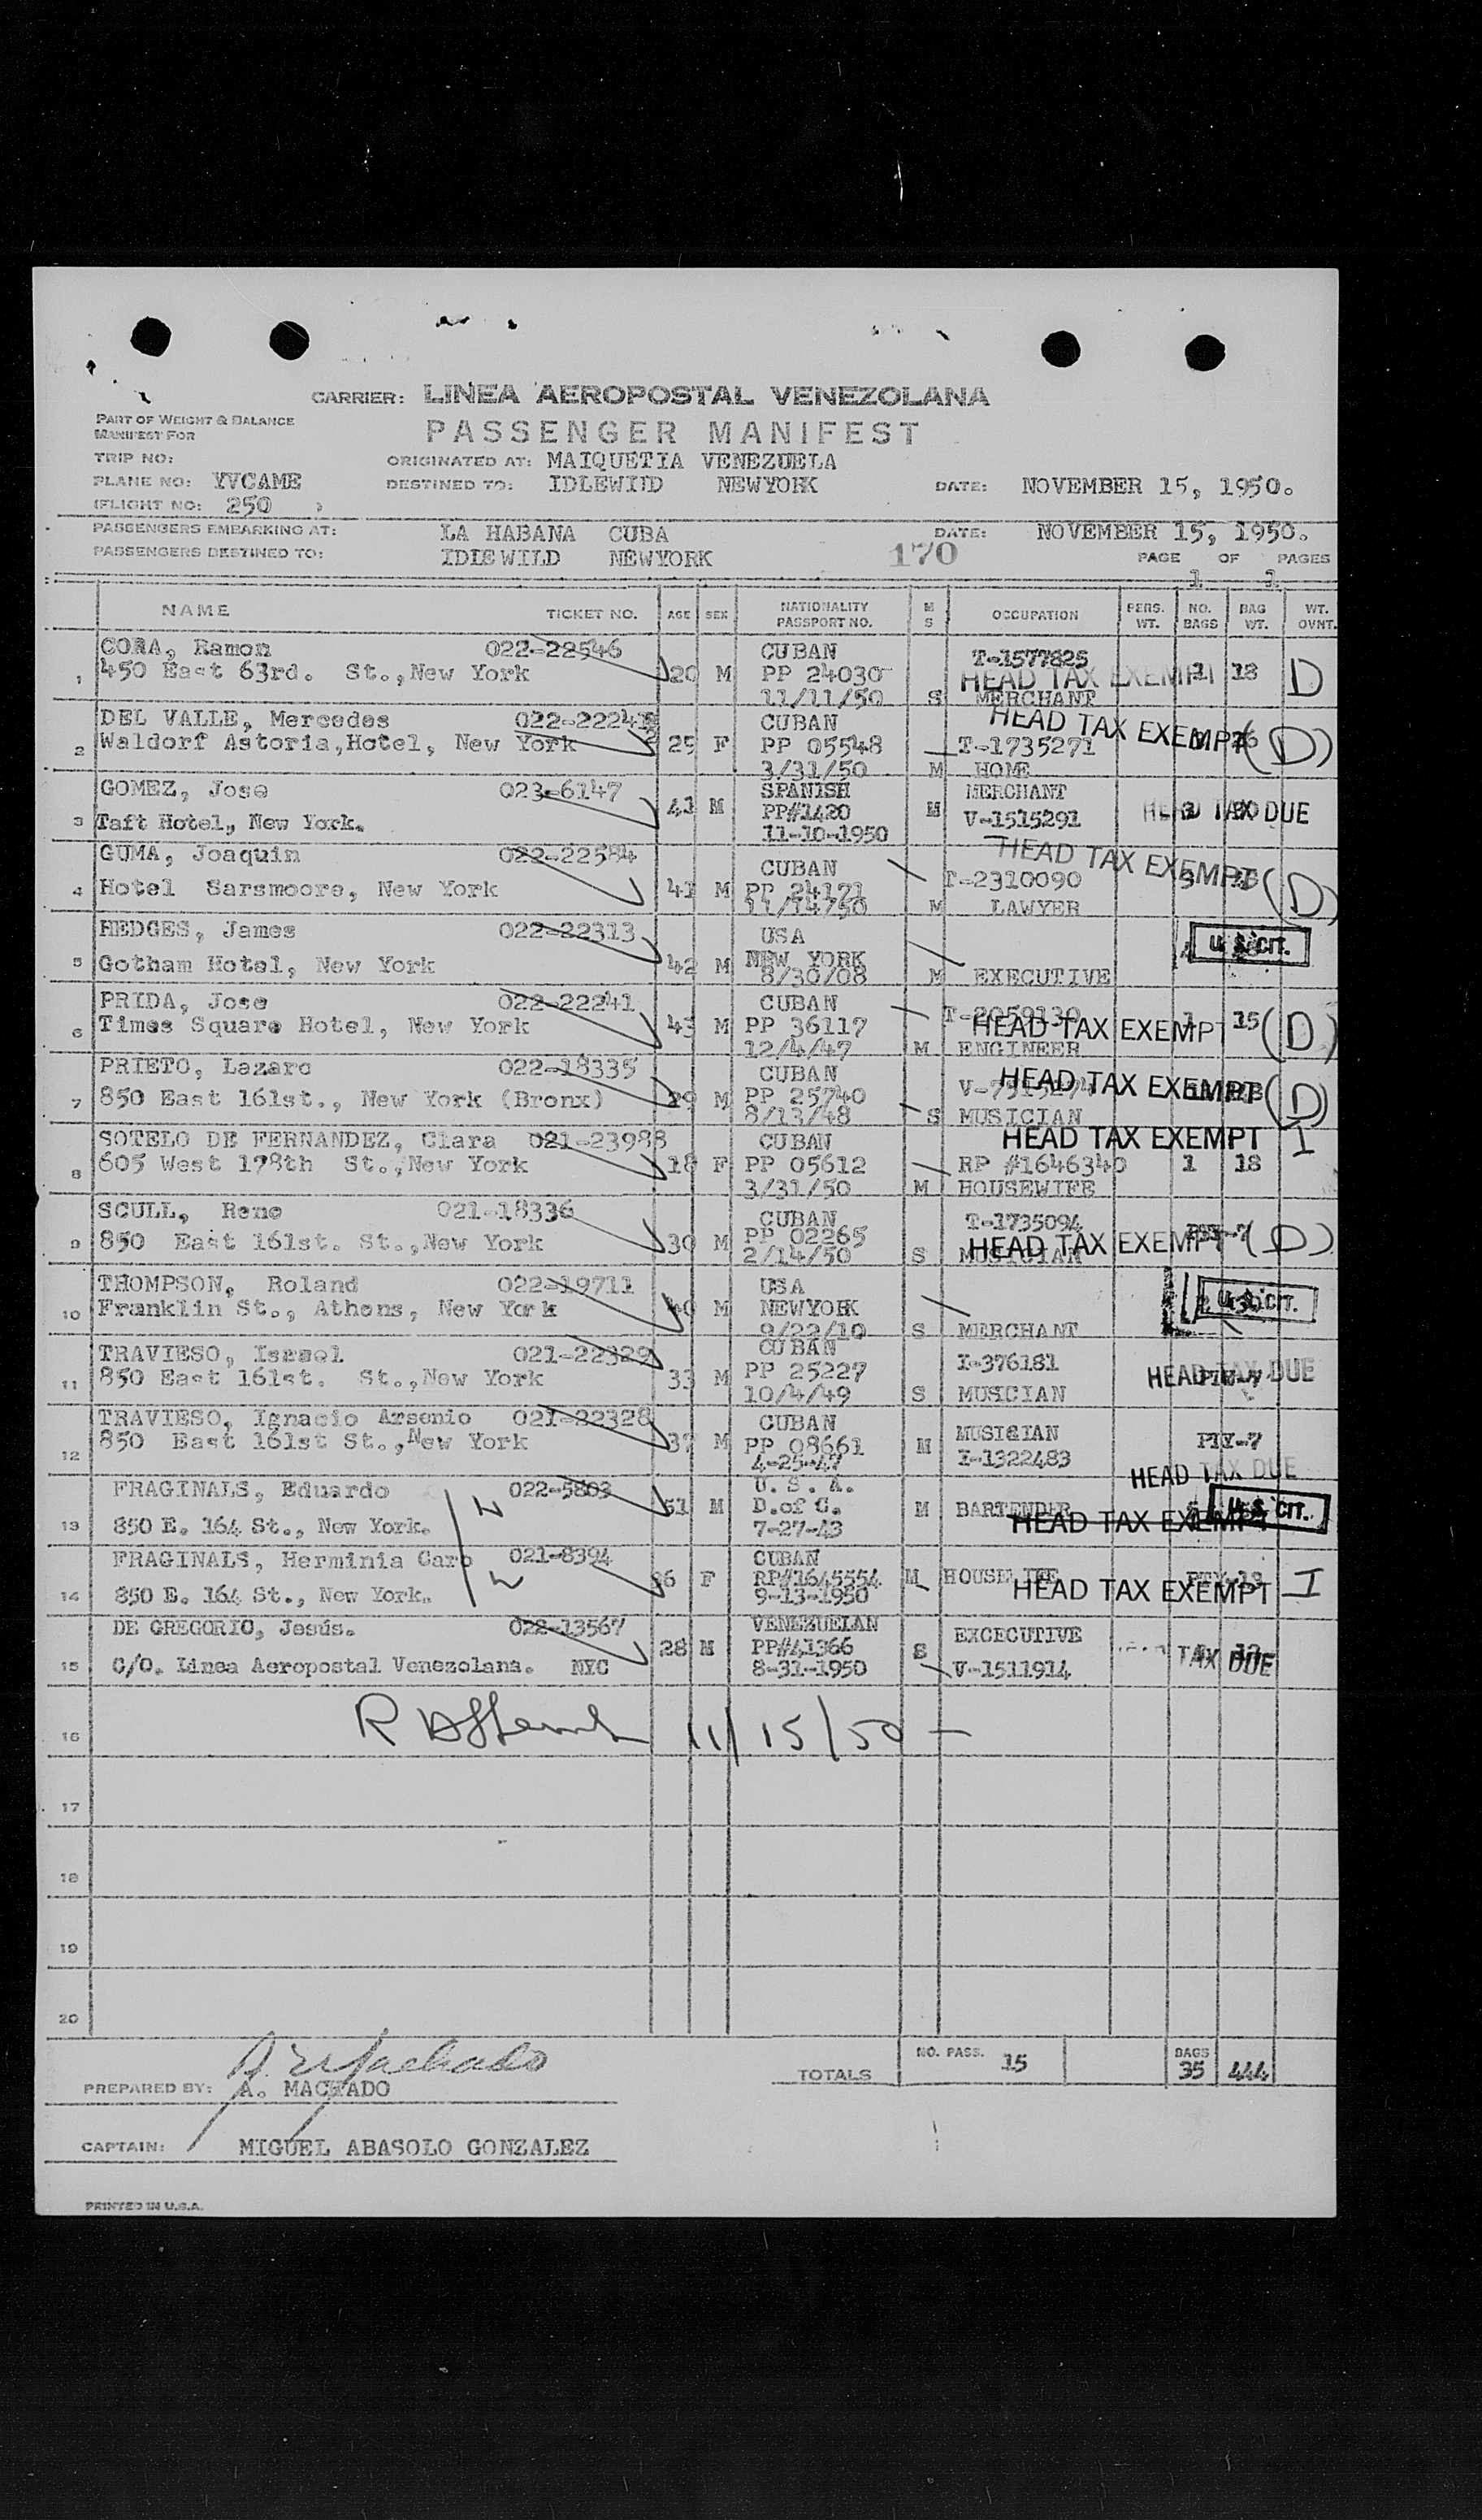 CARRIER: LINEA AEROPOSTAL VENEZOLANA
PART OF WEIGHT & BALANCE
MANIFEST FOR
PASSENGER MANIFEST
TRIP NO:
ORIGINATED AT: MAIQUETIA VENEZUELA
PLANE NO: YVCAME
DESTINED TO: IDLEWILD NEWYORK DATE: NOVEMBER 15, 1950.
(FLIGHT NO: 250 )
PASSENGERS EMBARKING AT: LA HABANA CUBA DATE: NOVEMBER 15, 1950.
PASSENGERS DESTINED TO: IDLEWILD NEWYORK 170 PAGE 1 OF 1 PAGES
NAME TICKET NO. AGE SEX NATIONALITY PASSPORT NO. M S OCCUPATION PERS. WT. NO. BAGS BAG WT. WT. OVNT.
CORA, Ramon 022-22546 CUBAN T-1577825
1 450 East 63rd. St.,New York 20 M PP 24030 HEAD TAX EXEMPT 1 18 D
11/11/50 S MERCHANT
DEL VALLE, Mercedes CUBAN HEAD TAX EXEMPT
2 Waldorf Astoria,Hotel, New York 25 F PP 05548 T-1735271 (D)
3/31/50 M HOME
GOMEZ, Jose 023-6147 SPANISH MERCHANT
3 Taft Hotel, New York. 41 M PP#1420 M V-1515291 HEAD TAX DUE
11-10-1950
GUMA, Joaquin 022-22584 CUBAN HEAD TAX EXEMPT
4 Hotel Sarsmoore, New York 41 M PP 24171 T-2310090 (D)
11/14/50 M LAWYER
HEDGES, James 022-22313 USA U.S. CIT.
5 Gotham Hotel, New York 42 M NEW YORK
8/30/08 M EXECUTIVE
PRIDA, Jose 022-22241 CUBAN T-2059130
6 Times Square Hotel, New York 43 M PP 36117 HEAD TAX EXEMPT 1 15 (D)
12/4/47 M ENGINEER
PRIETO, Lazaro 022-18335 CUBAN HEAD TAX EXEMPT
7 850 East 161st., New York (Bronx) 29 M PP 25740 (D)
8/13/48 S MUSICIAN
SOTELO DE FERNANDEZ, Clara 021-23988 CUBAN HEAD TAX EXEMPT I
8 605 West 178th St.,New York 18 F PP 05612 RP #1646340 1 18
3/31/50 M HOUSEWIFE
SCULL, Rene 021-18336 CUBAN T-1735094
9 850 East 161st. St.,New York 30 M PP 02265 HEAD TAX EXEMPT (D)
2/14/50 S MUSICIAN
THOMPSON, Roland 022-19711 USA U.S. CIT.
10 Franklin St., Athens, New York 40 M NEWYORK
9/22/10 S MERCHANT
TRAVIESO, Israel 021-22329 CUBAN I-376181
11 850 East 161st. St.,New York 33 M PP 25227 HEAD TAX DUE
10/4/49 S MUSICIAN
TRAVIESO, Ignacio Arsenio 021-22328 CUBAN MUSICIAN
12 850 East 161st St.,New York 37 M PP 08661 M I-1322483 PTY-7
4-25-47 HEAD TAX DUE
FRAGINALS, Eduardo 022-5803 U.S.A.
51 M D.of C. M BARTENDER U.S. CIT.
13 850 E. 164 St., New York. 7-27-43 HEAD TAX EXEMPT
FRAGINALS, Herminia Caro 021-8394 CUBAN
36 F RP#1645554 M HOUSEWIFE
14 850 E. 164 St., New York. 9-13-1950 HEAD TAX EXEMPT I
DE GREGORIO, Jesús. 022-13567 VENEZUELAN EXCECUTIVE
28 M PP#41366 S TAX DUE
15 C/O. Linea Aeropostal Venezolana. NYC 8-31-1950 V-1511914
16 11/15/50
17
18
19
20
TOTALS NO. PASS. 15 BAGS 35 444
PREPARED BY: A. MACHADO
CAPTAIN: MIGUEL ABASOLO GONZALEZ
PRINTED IN U.S.A.